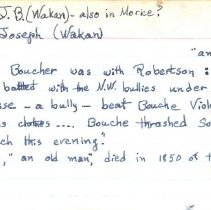 J.B. (Wakan) - also in Morice?
Joseph (Wakan)
"an
Boucher was with Robertson:
with the N.W. bullies under
se - a bully - beat Bouche Viol
.... Bouche thrashed So
ch this evening."
," an old man", died in 1850 of t